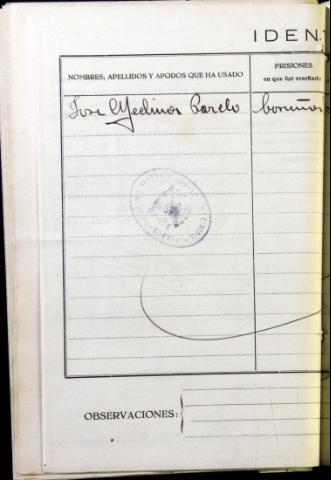 IDEN
NOMBRES, APELLIDOS Y APODOS QUE HA USADO
PRISIONES
en que fué reseñado
Jose Medinos Barelo
OBSERVACIONES: